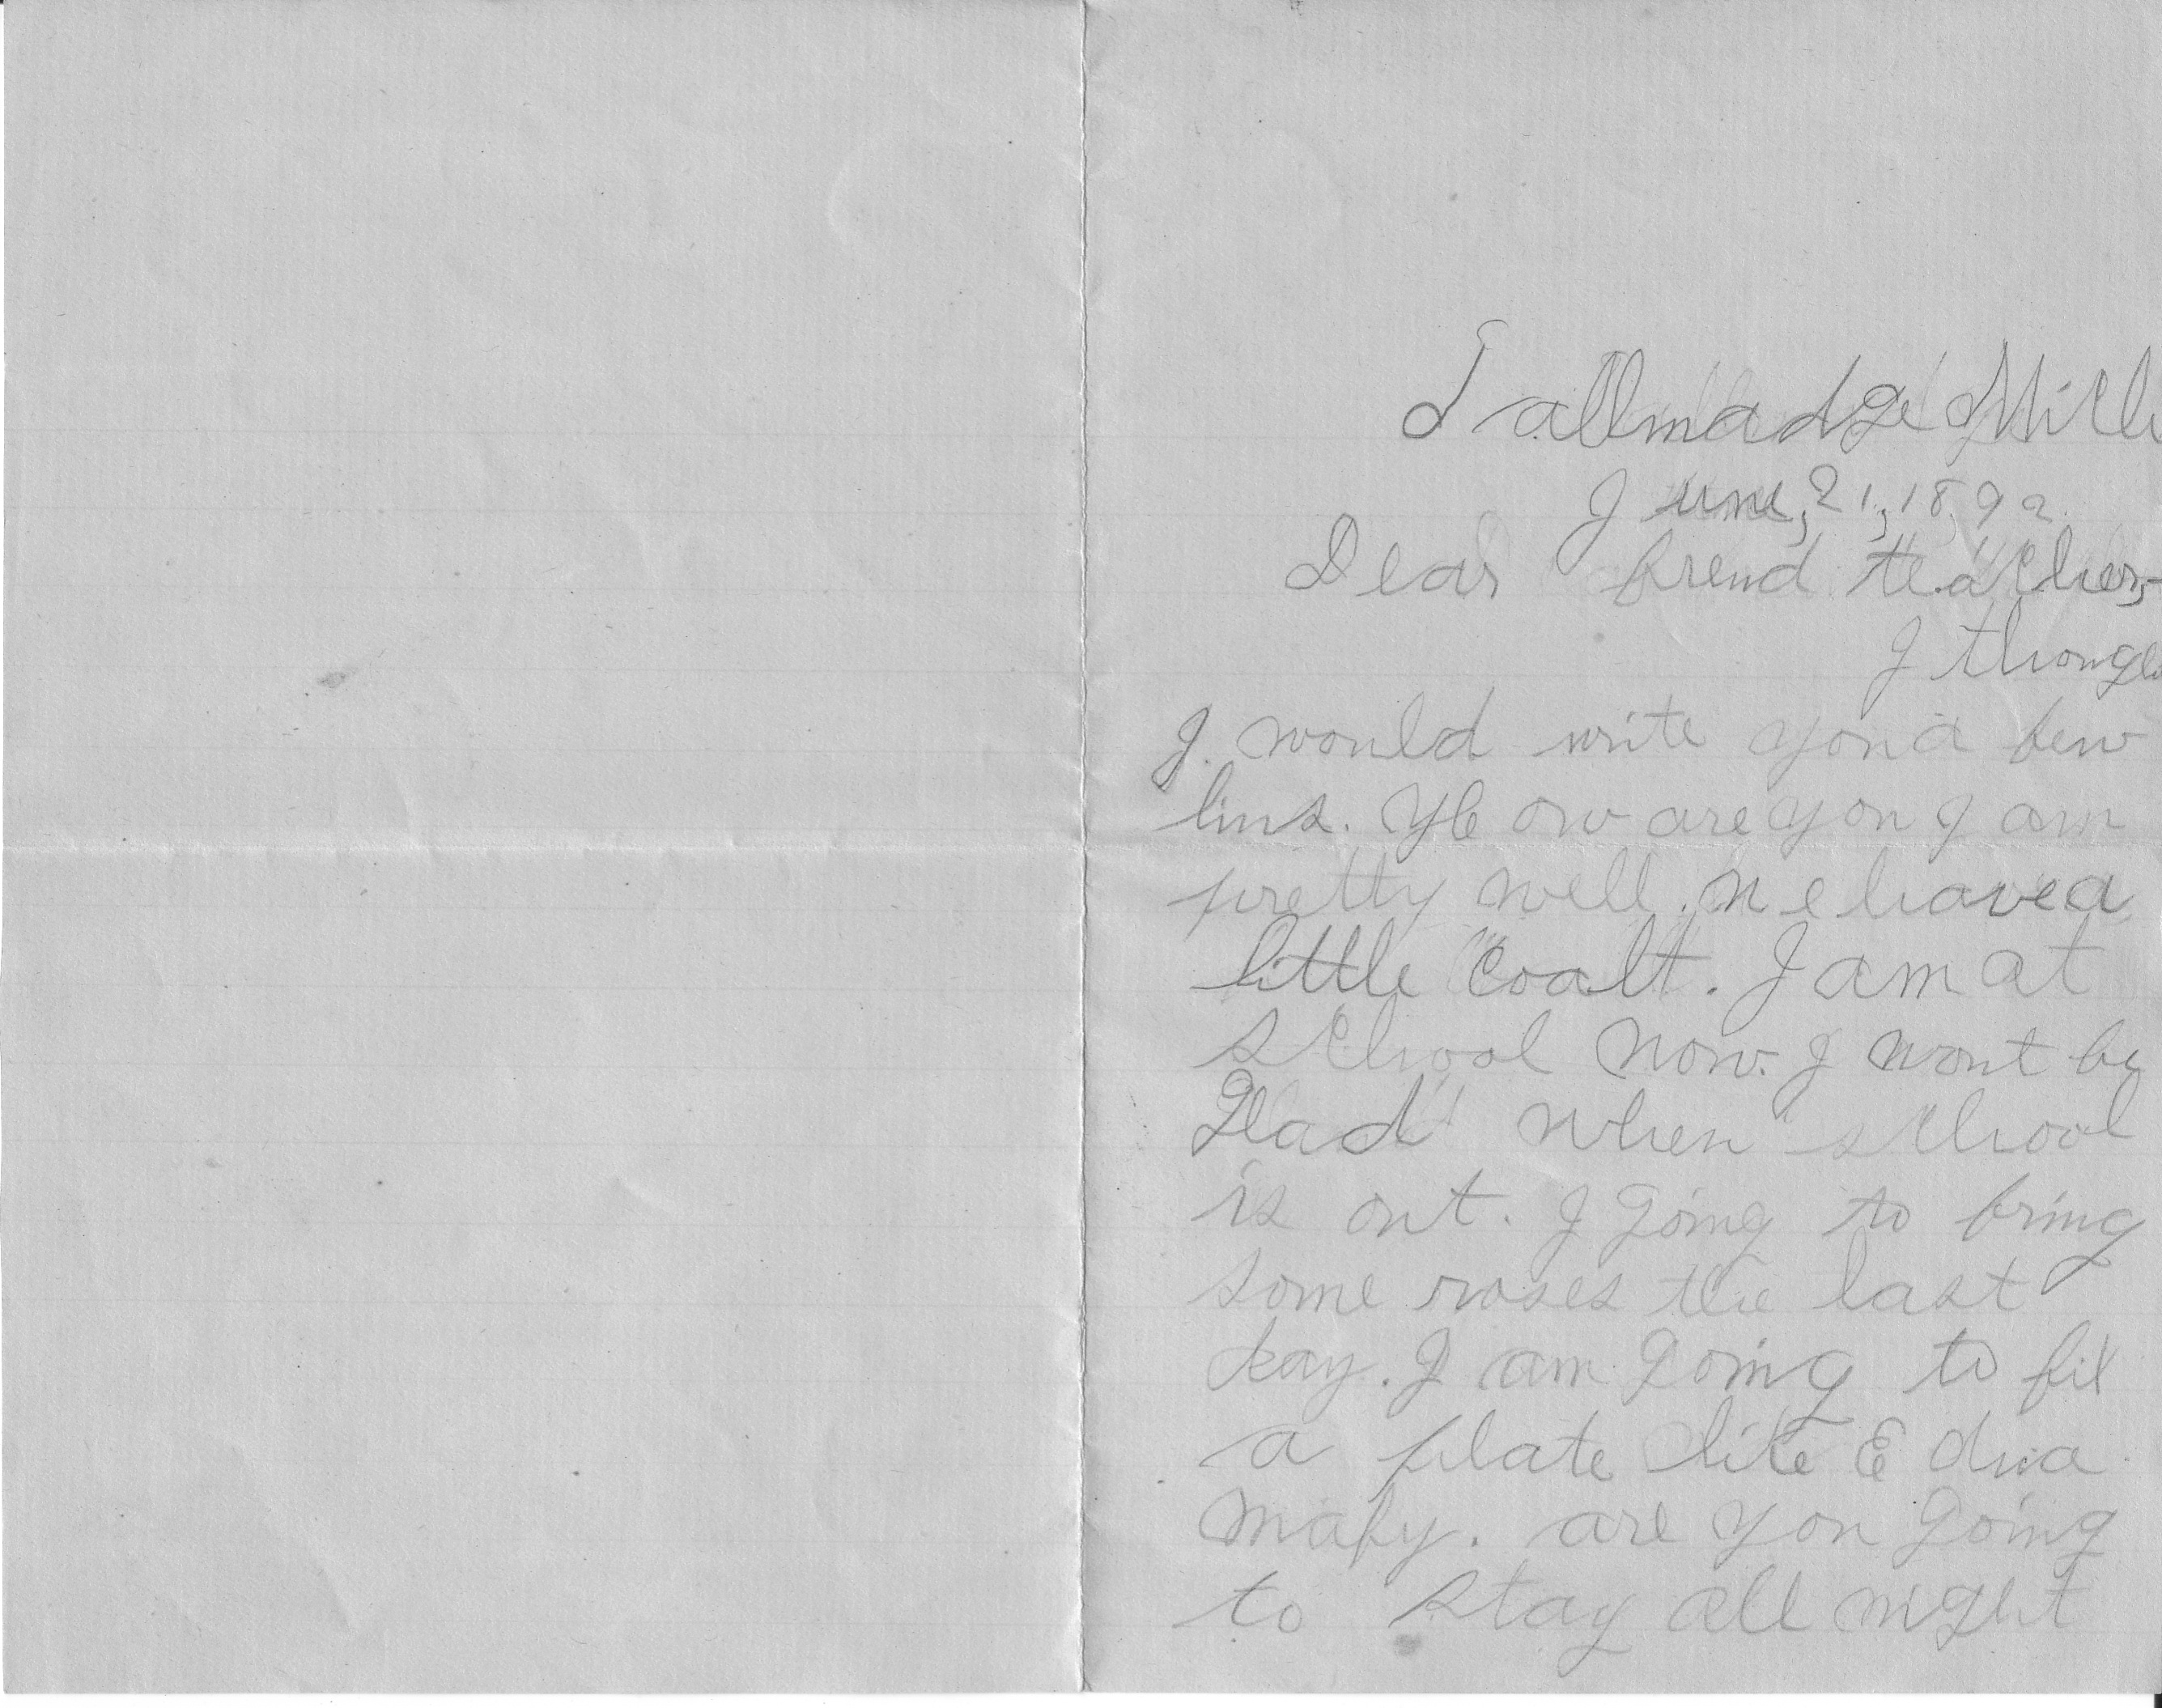 Tallmadge Mich
June, 21, 1892.
Dear frend teacher,-
I though
I. would write you a few
lins. How are you I am
pretty well. We have a
little coalt. I am at
school now. I wont be
Glad when school
is out. I going to bring
some roses the last
day. I am going to fix
a plate like Edna
are you going
to stay all night